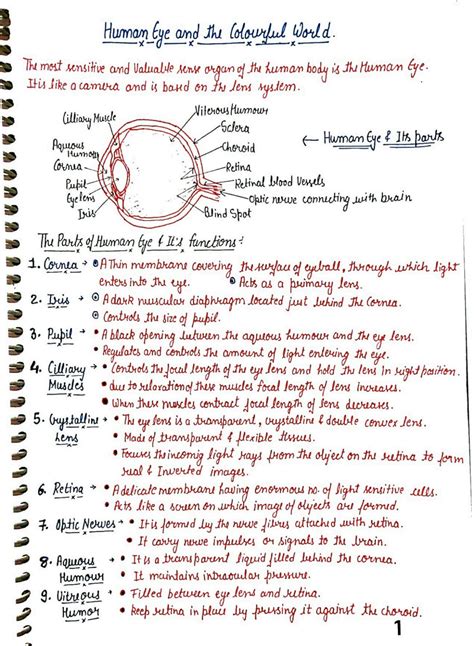 Human Eye and the Colourful World.
The most sensitive and Valuable sense organ of the human body is the Human Eye.
It is like a camera and is based on the lens system.
Cilliary Muscle
Aqueous
Humour
Cornea
Pupil
Eye lens
Iris
Viterous Humour
Sclera
Choroid
Retina
Retinal blood Vessels
Optic nerve connecting with brain
Blind Spot
← Human Eye & Its parts
The Parts of Human Eye & It's functions:
1. Cornea → A Thin membrane covering the surface of eyeball, through which light
enters into the eye. Acts as a primary lens.
2. Iris → A dark muscular diaphragm located just behind the Cornea.
Controls the size of pupil.
3. Pupil → • A black opening between the aqueous humour and the eye lens.
• Regulates and controls the amount of light entering the eye.
4. Cilliary Muscles → • Controls the focal length of the eye lens and hold the lens in right position.
• due to relaxation of these muscles focal length of lens increases.
• When these muscles contract focal length of lens decreases.
5. Crystalline Lens → • The eye lens is a transparent, crystalline & double convex lens.
• Made of transparent & flexible tissues.
• Focuses the incomig light rays from the object on the retina to form
real & Inverted images.
6. Retina → • A delicate membrane having enormous no. of light sensitive cells.
• Acts like a screen on which image of objects are formed.
7. Optic Nerves → • It is formed by the nerve fibres attached with retina.
• It carry nerve impulses or signals to the brain.
8. Aqueous Humour → • It is a transparent liquid filled behind the cornea.
• It maintains intraocular pressure.
9. Vitreous Humor → • Filled between eye lens and retina.
• keep retina in place by pressing it against the choroid.
1